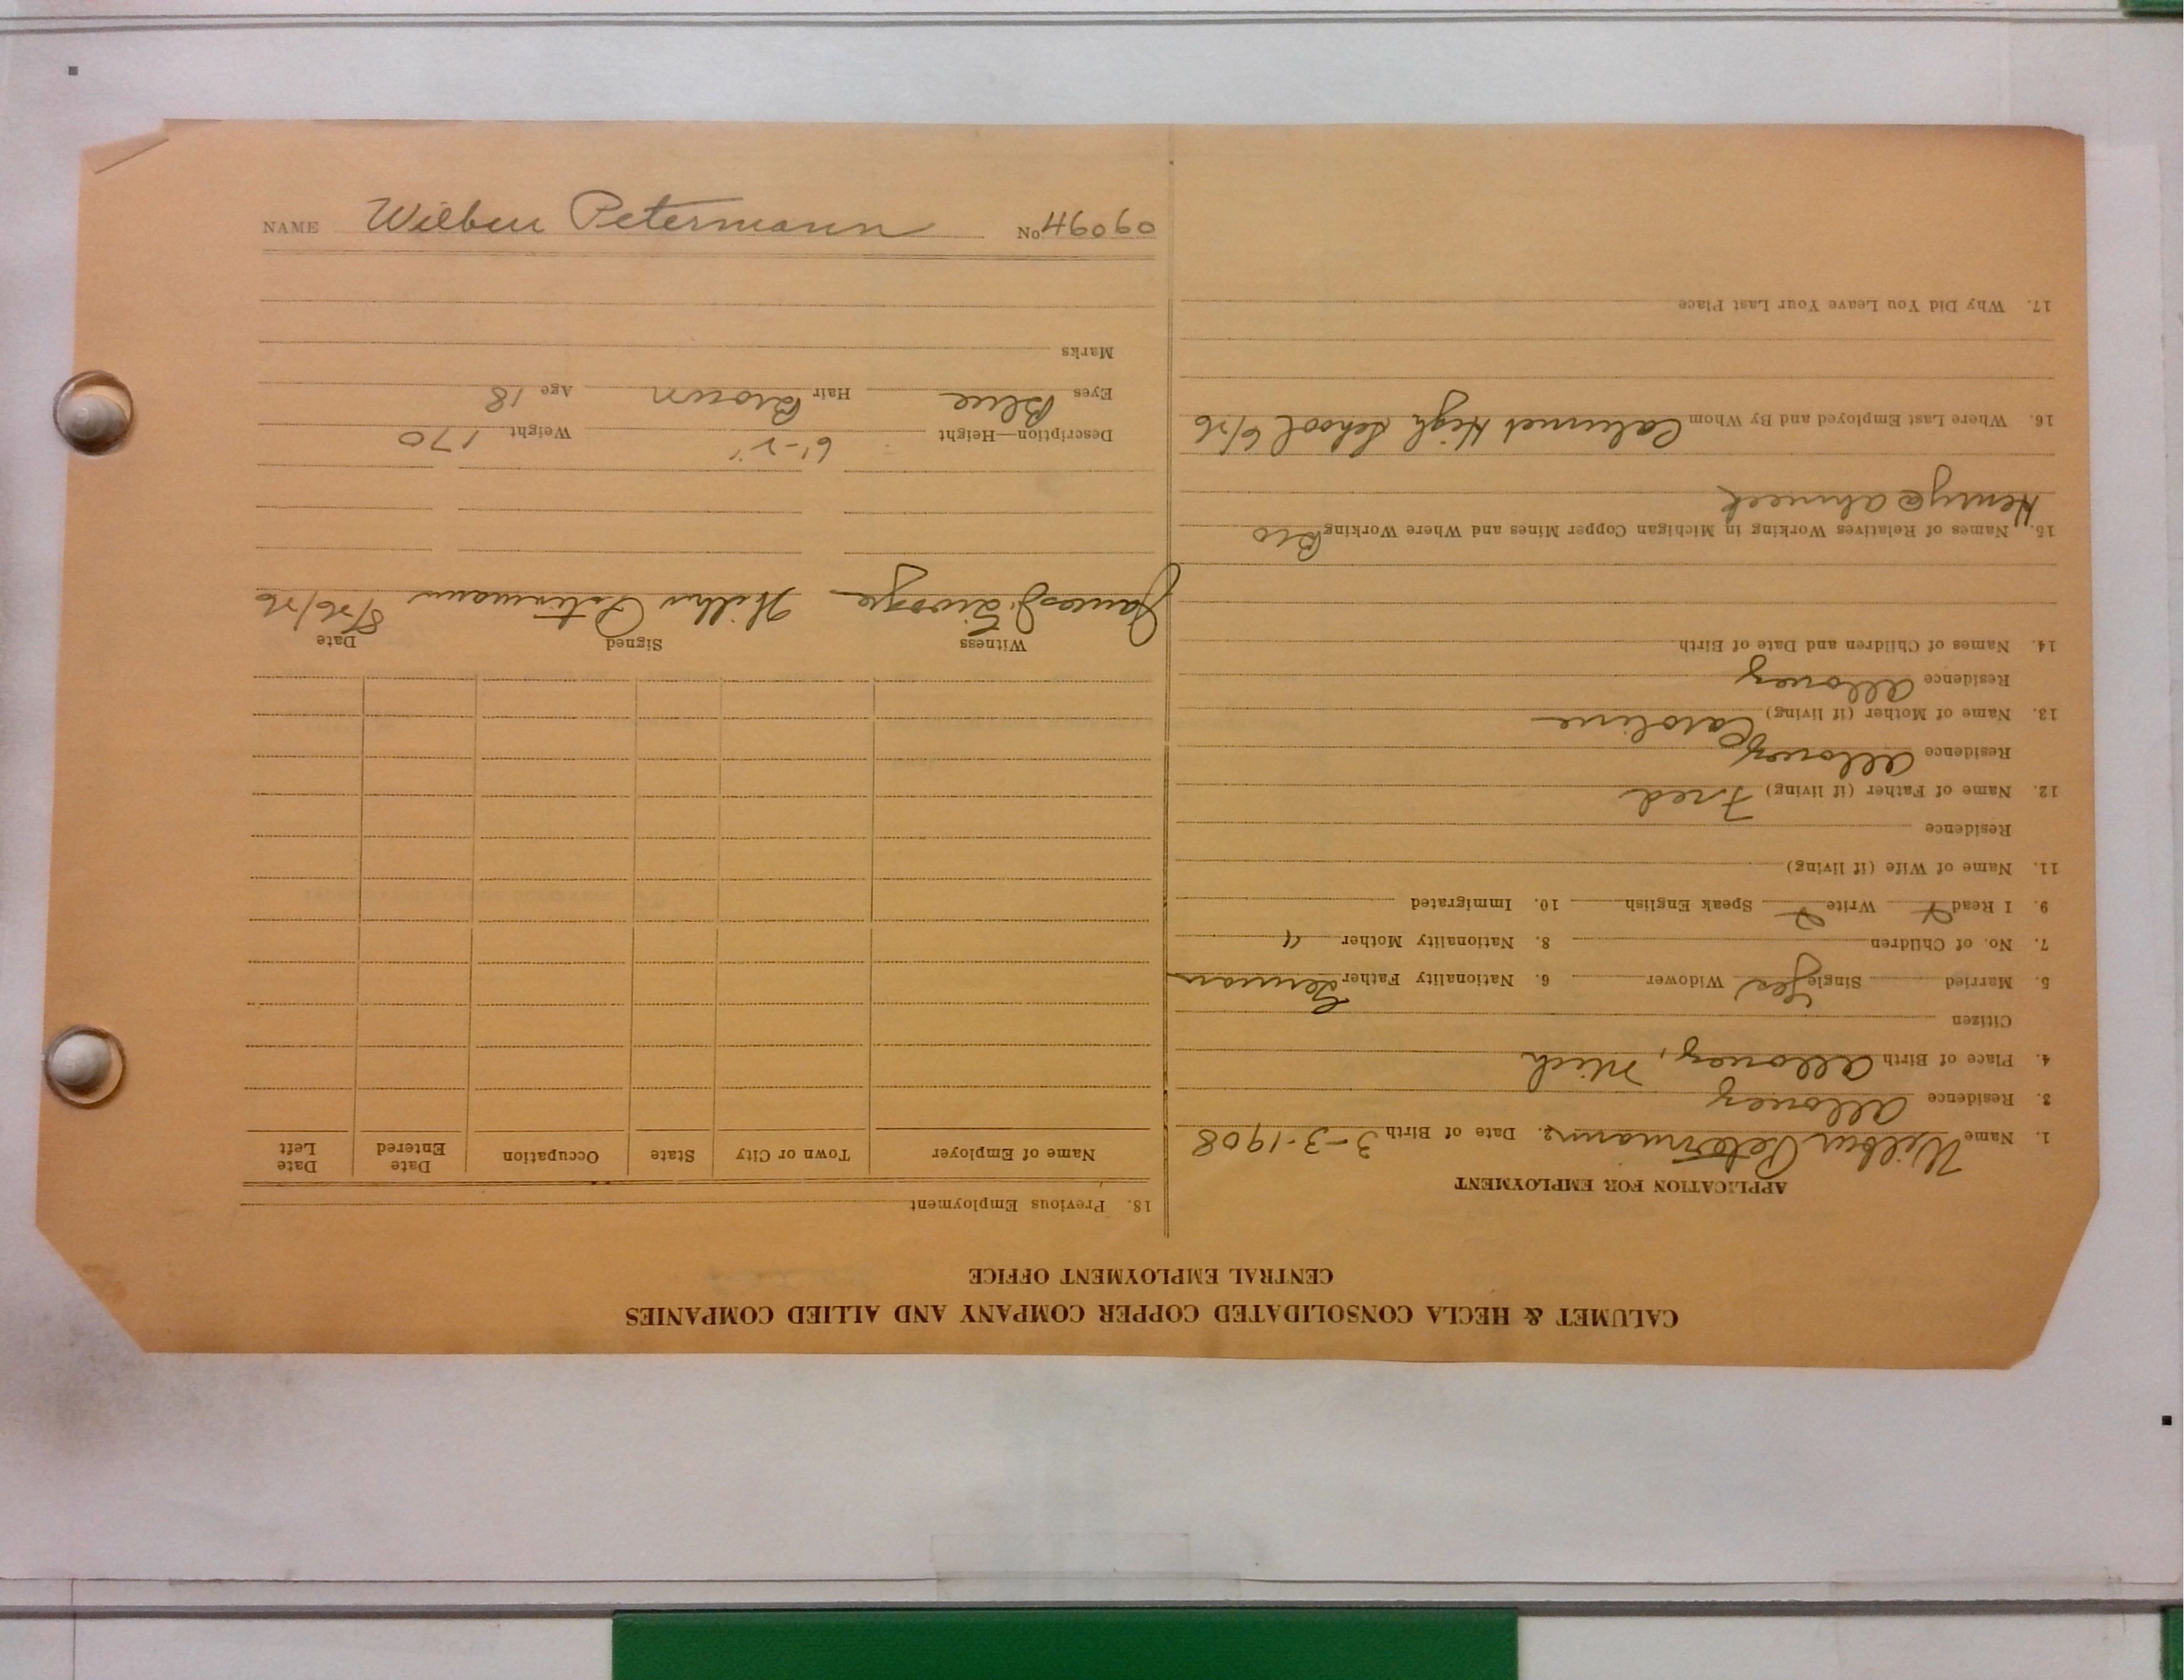 CALUMET & HECLA CONSOLIDATED COPPER COMPANY AND ALLIED COMPANIES
CENTRAL EMPLOYMENT OFFICE
APPLICATION FOR EMPLOYMENT
1. Name Wilbur Petermann 2. Date of Birth 3-3-1908
3. Residence Allouez
4. Place of Birth Allouez, Mich
Citizen
5. Married Single Yes Widower 6. Nationality Father German
7. No. of Children 8. Nationality Mother "
9. I Read Write Speak English 10. Immigrated
11. Name of Wife (if living)
Residence
12. Name of Father (if living) Fred
Residence Allouez
13. Name of Mother (if living) Caroline
Residence Allouez
14. Names of Children and Date of Birth
15. Names of Relatives Working in Michigan Copper Mines and Where Working Bro
Henry @ Ahmeek
16. Where Last Employed and By Whom Calumet High School 6/26
17. Why Did You Leave Your Last Place
18. Previous Employment
Name of Employer Town or City State Occupation Date Entered Date Left
Witness Signed Date
James J. Wilbur Petermann 8/26/26
Description—Height 6'-2" Weight 170
Eyes Blue Hair Brown Age 18
Marks
NAME Wilbur Petermann No 46060